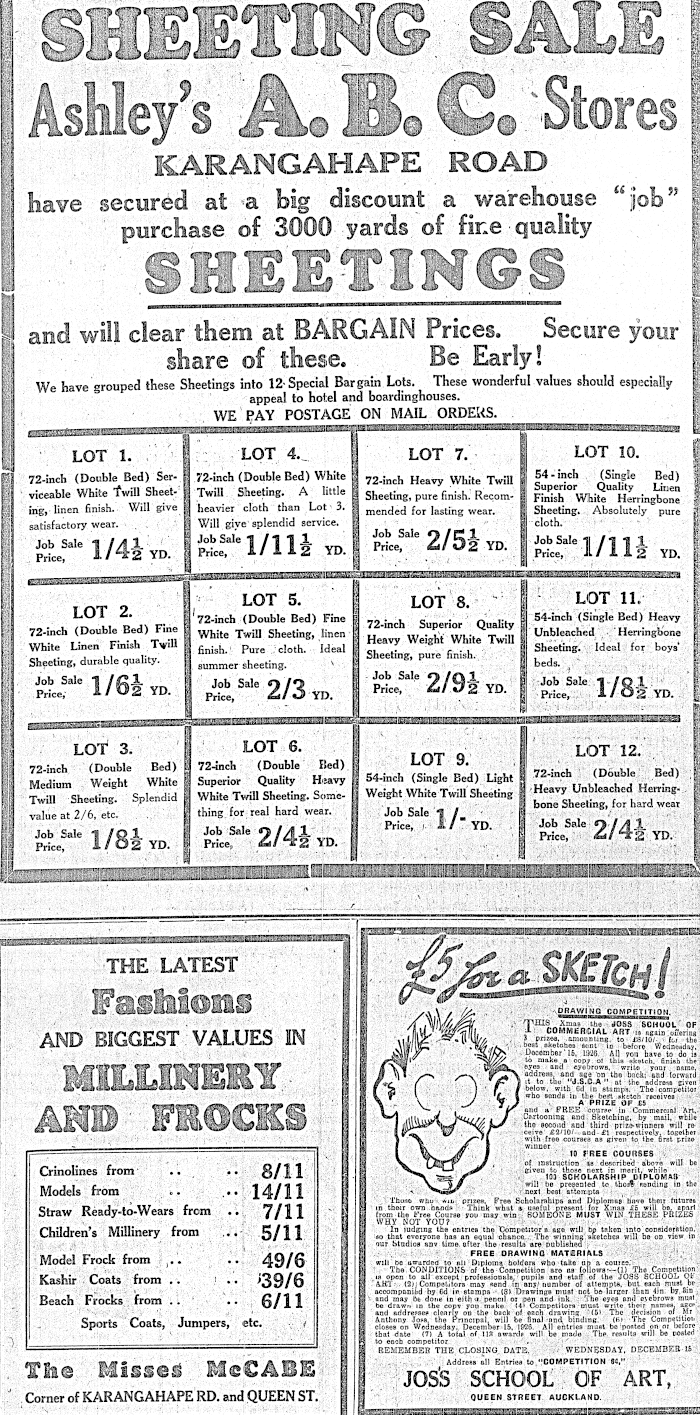 SHEETING SALE
Ashley's A.B.C. Stores
KARANGAHAPE ROAD
have secured at a big discount a warehouse "job"
purchase of 3000 yards of fine quality
SHEETINGS
and will clear them at BARGAIN Prices. Secure your
share of these. Be Early!
We have grouped these Sheetings into 12 Special Bargain Lots. These wonderful values should especially
appeal to hotel and boardinghouses.
WE PAY POSTAGE ON MAIL ORDERS.
LOT 1.
72-inch (Double Bed) Ser-
viceable White Twill Sheet-
ing, linen finish. Will give
satisfactory wear.
Job Sale Price, 1/4½ YD.
LOT 4.
72-inch (Double Bed) White
Twill Sheeting. A little
heavier cloth than Lot 3.
Will give splendid service.
Job Sale Price, 1/11½ YD.
LOT 7.
72-inch Heavy White Twill
Sheeting, pure finish. Recom-
mended for lasting wear.
Job Sale Price, 2/5½ YD.
LOT 10.
54-inch (Single Bed)
Superior Quality Linen
Finish White Herringbone
Sheeting. Absolutely pure
cloth.
Job Sale Price, 1/11½ YD.
LOT 2.
72-inch (Double Bed) Fine
White Linen Finish Twill
Sheeting, durable quality.
Job Sale Price, 1/6½ YD.
LOT 5.
72-inch (Double Bed) Fine
White Twill Sheeting, linen
finish. Pure cloth. Ideal
summer sheeting.
Job Sale Price, 2/3 YD.
LOT 8.
72-inch Superior Quality
Heavy Weight White Twill
Sheeting, pure finish.
Job Sale Price, 2/9½ YD.
LOT 11.
54-inch (Single Bed) Heavy
Unbleached Herringbone
Sheeting. Ideal for boys'
beds.
Job Sale Price, 1/8½ YD.
LOT 3.
72-inch (Double Bed)
Medium Weight White
Twill Sheeting. Splendid
value at 2/6, etc.
Job Sale Price, 1/8½ YD.
LOT 6.
72-inch (Double Bed)
Superior Quality Heavy
White Twill Sheeting. Some-
thing for real hard wear.
Job Sale Price, 2/4½ YD.
LOT 9.
54-inch (Single Bed) Light
Weight White Twill Sheeting
Job Sale Price, 1/- YD.
LOT 12.
72-inch (Double Bed)
Heavy Unbleached Herring-
bone Sheeting, for hard wear
Job Sale Price, 2/4½ YD.
THE LATEST
Fashions
AND BIGGEST VALUES IN
MILLINERY
AND FROCKS
Crinolines from .. .. 8/11
Models from .. .. 14/11
Straw Ready-to-Wears from .. 7/11
Children's Millinery from .. 5/11
Model Frock from .. .. 49/6
Kashir Coats from .. .. 39/6
Beach Frocks from .. .. 6/11
Sports Coats, Jumpers, etc.
The Misses McCABE
Corner of KARANGAHAPE RD. and QUEEN ST.
£5 for a SKETCH!
DRAWING COMPETITION.
THIS Xmas the JOSS SCHOOL OF
COMMERCIAL ART is again offering
3 prizes, amounting to £8/10/- for the
best sketches sent in before Wednesday,
December 15, 1926. All you have to do is
to make a copy of this sketch, finish the
eyes and eyebrows, write your name,
address, and age on the back, and forward
it to the "J.S.C.A." at the address given
below, with 6d in stamps. The competitor
who sends in the best sketch receives
A PRIZE OF £5
and a FREE course in Commercial Art,
Cartooning and Sketching, by mail, while
the second and third prize-winners will re-
ceive £2/10/- and £1 respectively, together
with free courses as given to the first prize
winner
10 FREE COURSES
of instruction as described above will be
given to those next in merit, while
100 SCHOLARSHIP DIPLOMAS
will be presented to those sending in the
next best attempts
Those who win prizes, Free Scholarships and Diplomas have their futures
in their own hands. Think what a useful present for Xmas £5 will be, apart
from the Free Course you may win. SOMEONE MUST WIN THESE PRIZES
WHY NOT YOU?
In judging the entries the Competitor's age will be taken into consideration,
so that everyone has an equal chance. The winning sketches will be on view in
our Studios any time after the results are published
FREE DRAWING MATERIALS
will be awarded to all Diploma holders who take up a course.
The CONDITIONS of the Competition are as follows:—(1) The Competition
is open to all except professionals, pupils and staff of the JOSS SCHOOL OF
ART. (2) Competitors may send in any number of attempts, but each must be
accompanied by 6d in stamps (3) Drawings must not be larger than 4in. by 8in
and may be done in either pencil or pen and ink. The eyes and eyebrows must
be drawn in the copy you make (4) Competitors must write their names, ages
and addresses clearly on the back of each drawing (5) The decision of Mr
Anthony Joss, the Principal, will be final and binding. (6) The Competition
closes on Wednesday, December 15, 1926. All entries must be posted on or before
that date (7) A total of 113 awards will be made The results will be posted
to each competitor
REMEMBER THE CLOSING DATE, WEDNESDAY, DECEMBER 15
Address all Entries to "COMPETITION 64,"
JOSS SCHOOL OF ART,
QUEEN STREET AUCKLAND.